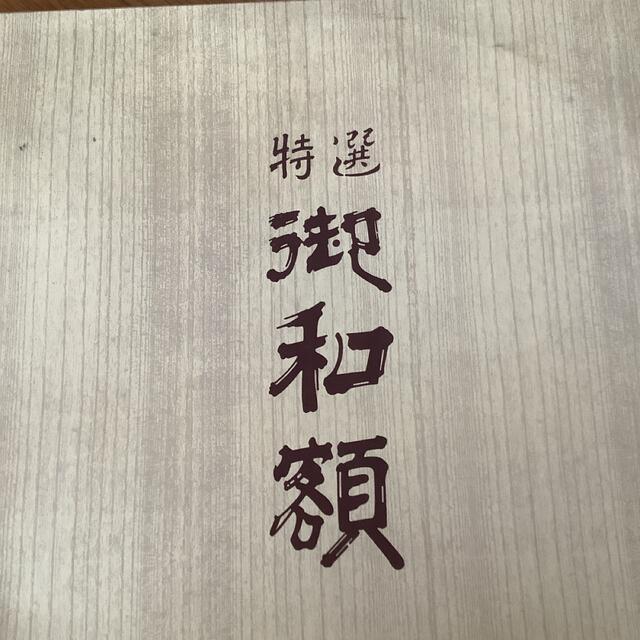 特選
御和額